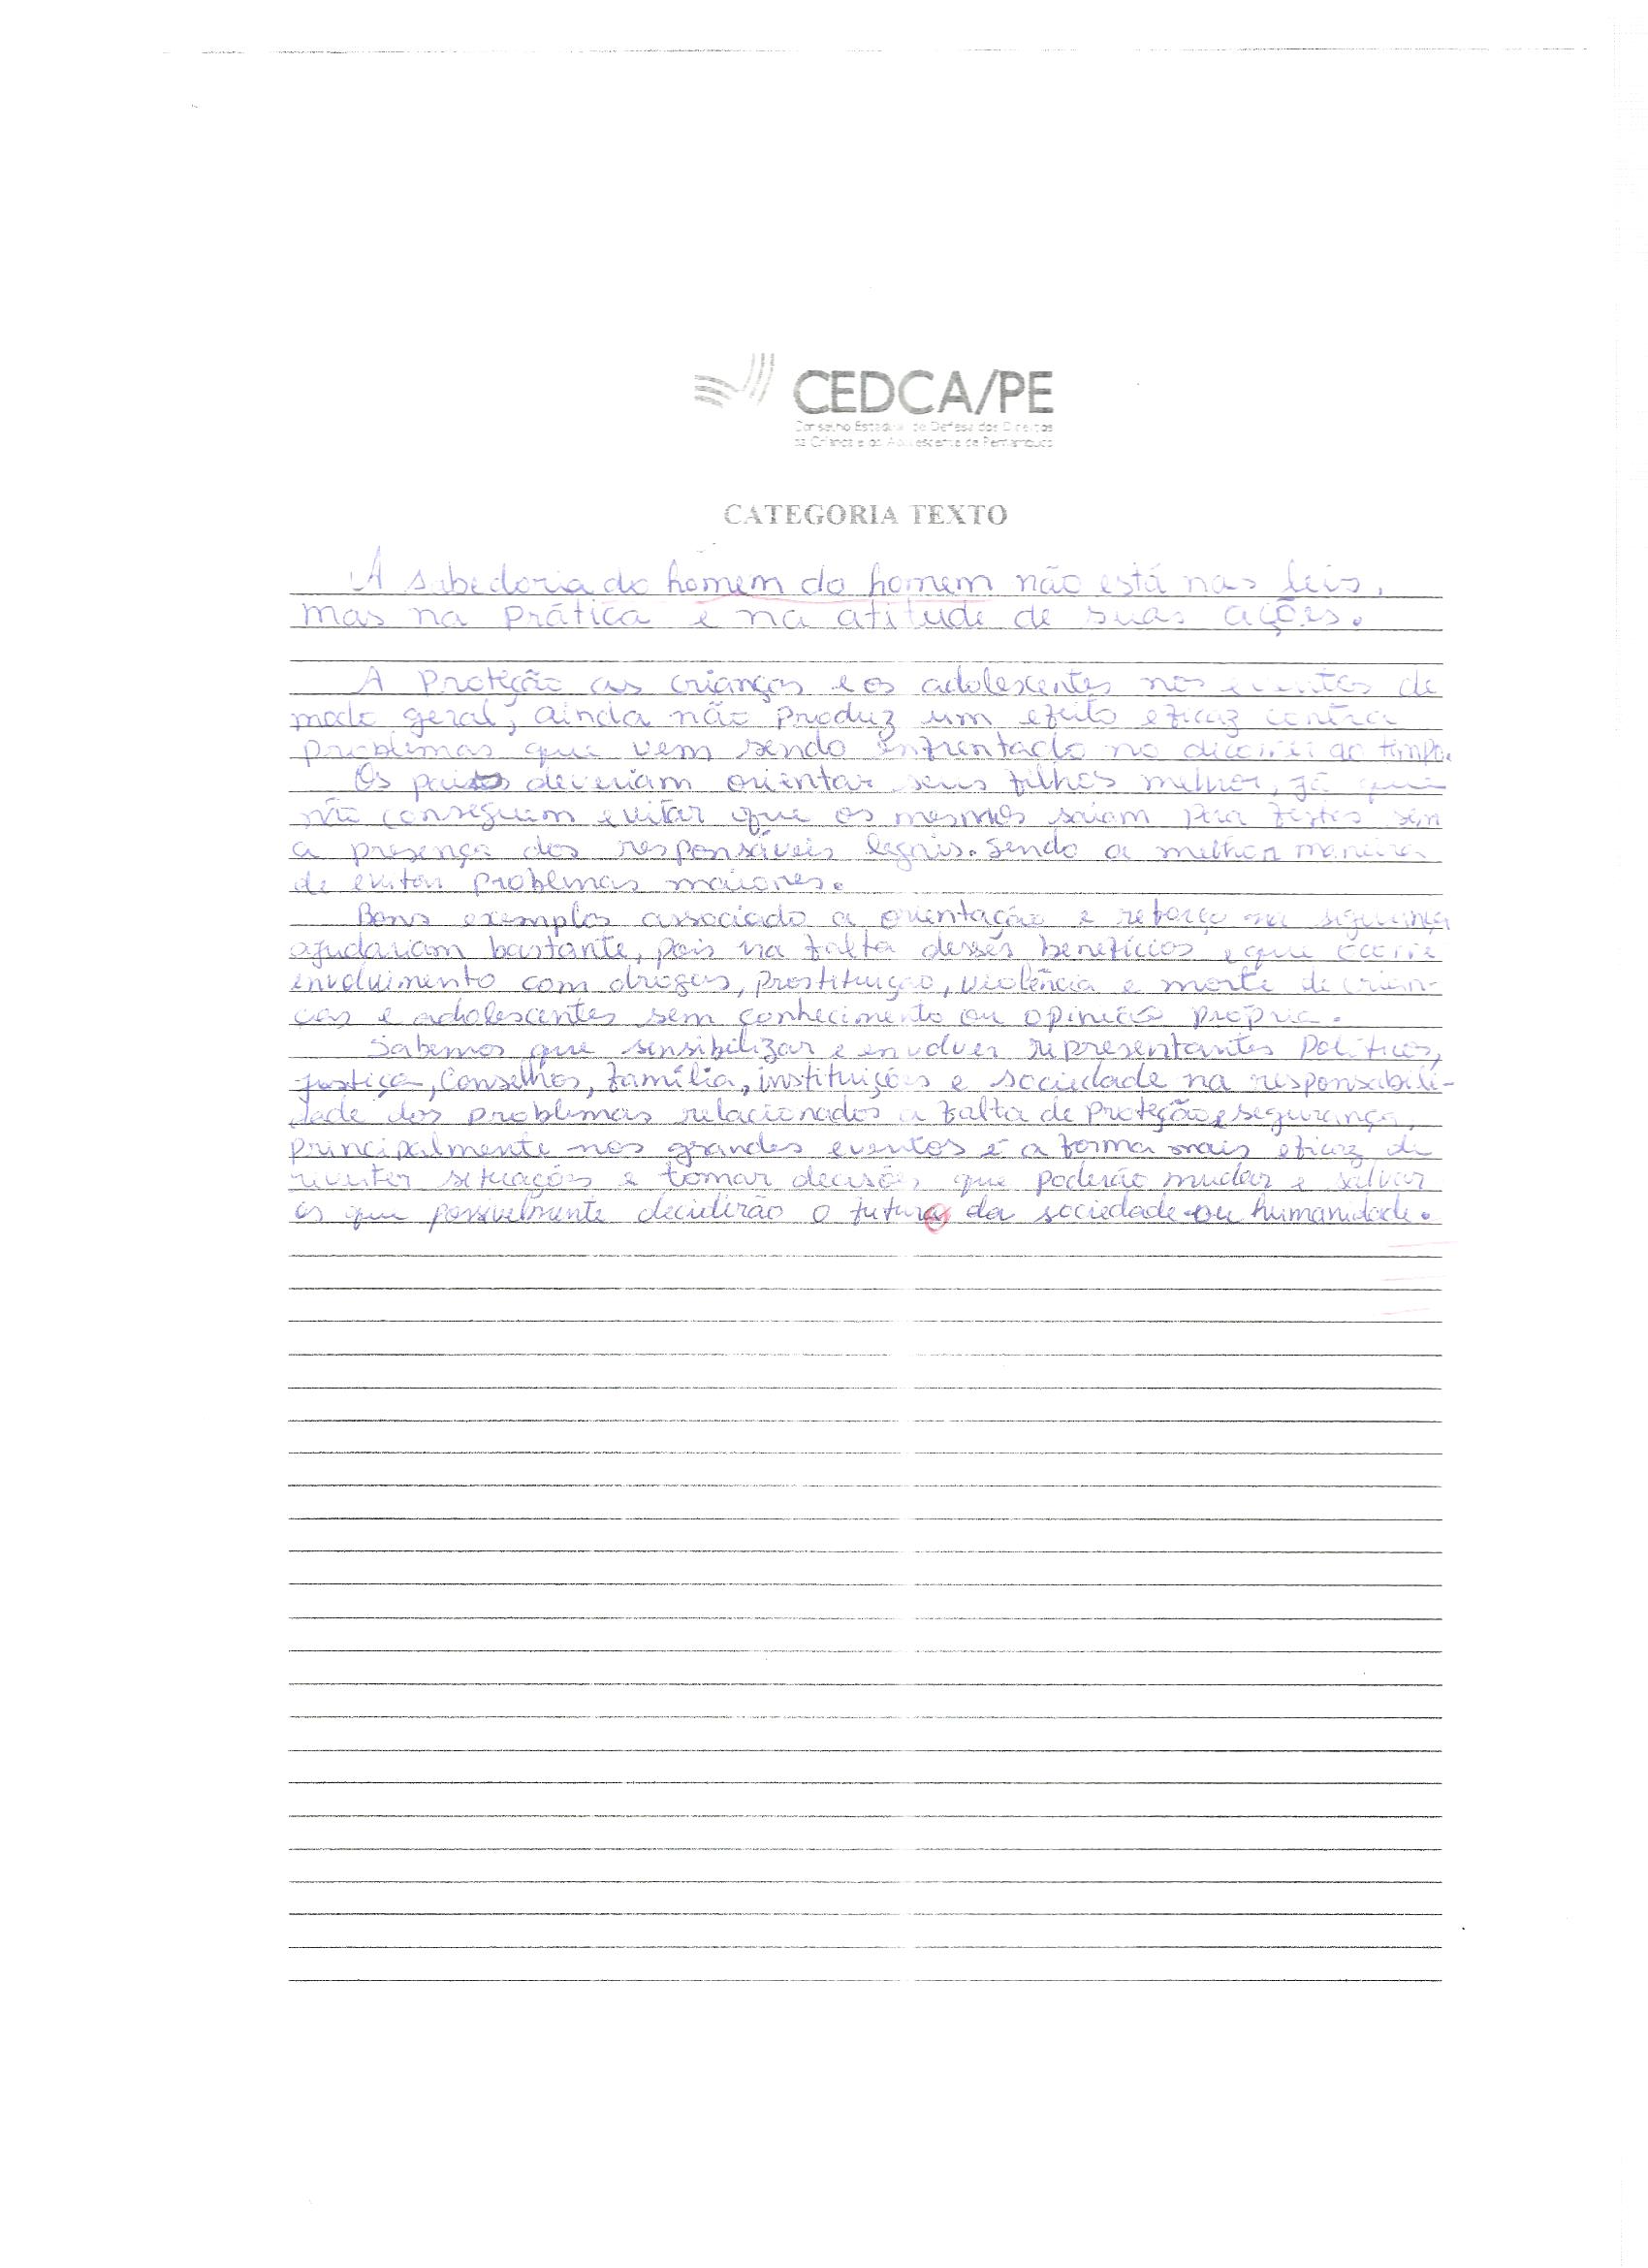 CEDCA/PE
Conselho Estadual de Defesa dos Direitos
da Criança e do Adolescente de Pernambuco
CATEGORIA TEXTO
A sabedoria do homem do homem não está nas leis,
mas na prática e na atitude de suas ações.
A Proteção as crianças e os adolescentes nos eventos de
modo geral, ainda não produz um efeito eficaz contra
problemas que vem sendo enfrentado no decorrer do tempo.
Os pais deveriam orientar seus filhos melhor, já que
não conseguem evitar que os mesmos saiam para festas sem
a presença dos responsáveis legais. Sendo a melhor maneira
de evitar problemas maiores.
Bons exemplos associado a orientação e reforço na segurança
ajudariam bastante, pois na falta desses benefícios é que ocorre
envolvimento com drogas, prostituição, violência e morte de crian-
ças e adolescentes sem conhecimento ou opinião própria.
Sabemos que sensibilizar e envolver representantes políticos,
justiça, Conselhos, família, instituições e sociedade na responsabili-
dade dos problemas relacionados a falta de Proteção e segurança,
principalmente nos grandes eventos é a forma mais eficaz de
reverter situações e tomar decisões que poderão mudar e salvar
os que possivelmente decidirão o futuro da sociedade ou humanidade.